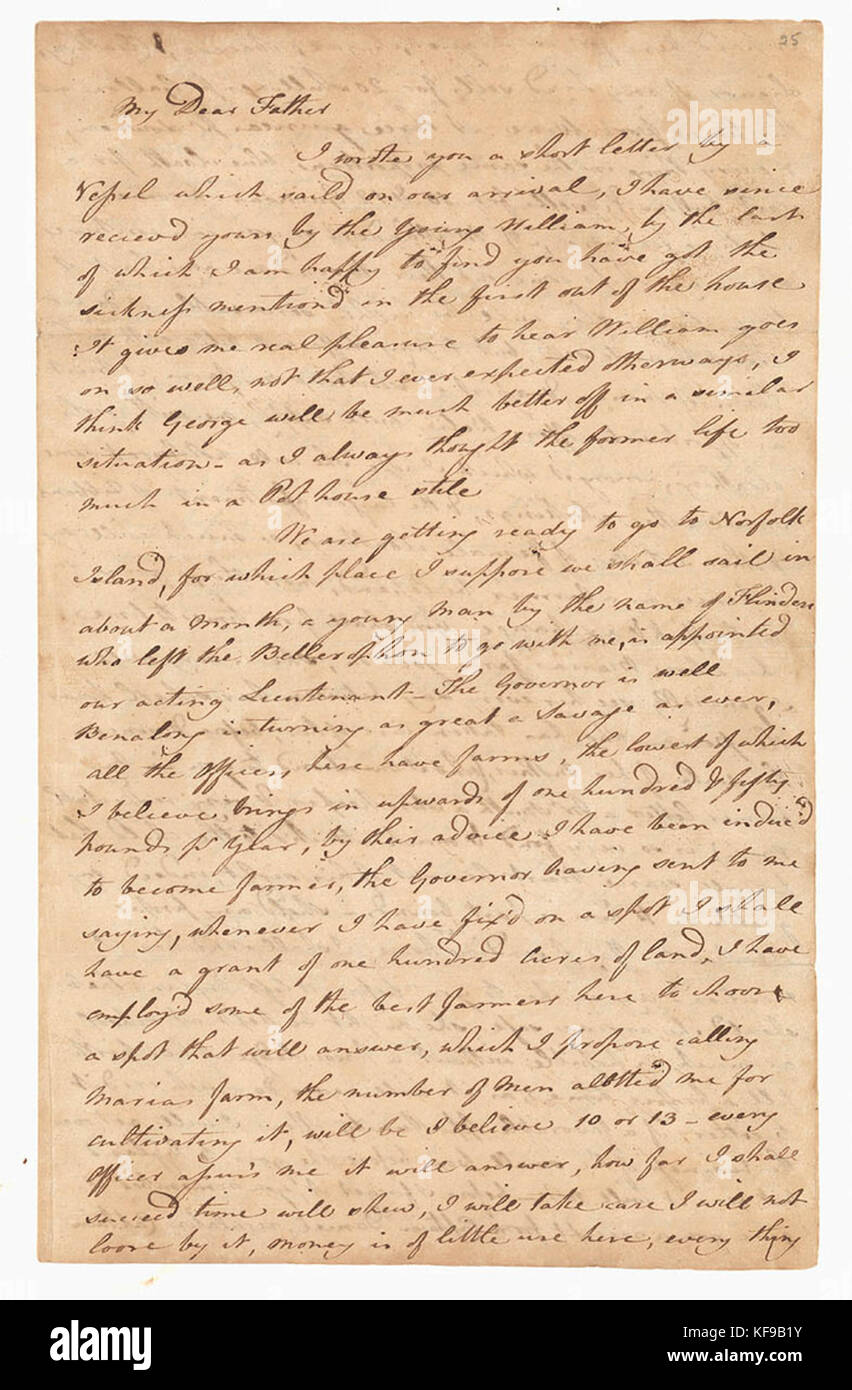 25
My Dear Father
I wrote you a short letter by a
Vessel which saild on our arrival, I have since
recievd yours by the Young William, by the last
of which I am happy to find you have got the
sickness mentiond in the first out of the house
It gives me real pleasure to hear William goes
on so well, not that I ever expected otherways, I
think George will be much better off in a similar
situation – as I always thought the former life too
much in a Pot house stile
We are getting ready to go to Norfolk
Island, for which place I suppose we shall sail in
about a month, a young man by the name of Flinders
who left the Bellerophon to go with me, is appointed
our acting Lieutenant – The Governor is well
Benalong is turning as great a Savage as ever,
all the Officers here have farms, the lowest of which
I believe brings in upwards of one hundred & fifty
pounds pr Year, by their advice I have been induc'd
to become farmer, the Governor having sent to me
saying, whenever I have fix'd on a spot I shall
have a grant of one hundred Acres of land, I have
employd some of the best farmers here to choose
a spot that will answer, which I propose calling
Marias farm, the number of Men allotted me for
cultivating it, will be I believe 10 or 13 – every
Officer assures me it will answer, how far I shall
succeed time will shew, I will take care I will not
loose by it, money is of little use here, every thing
alamy
Image ID: KF9B1Y
www.alamy.com